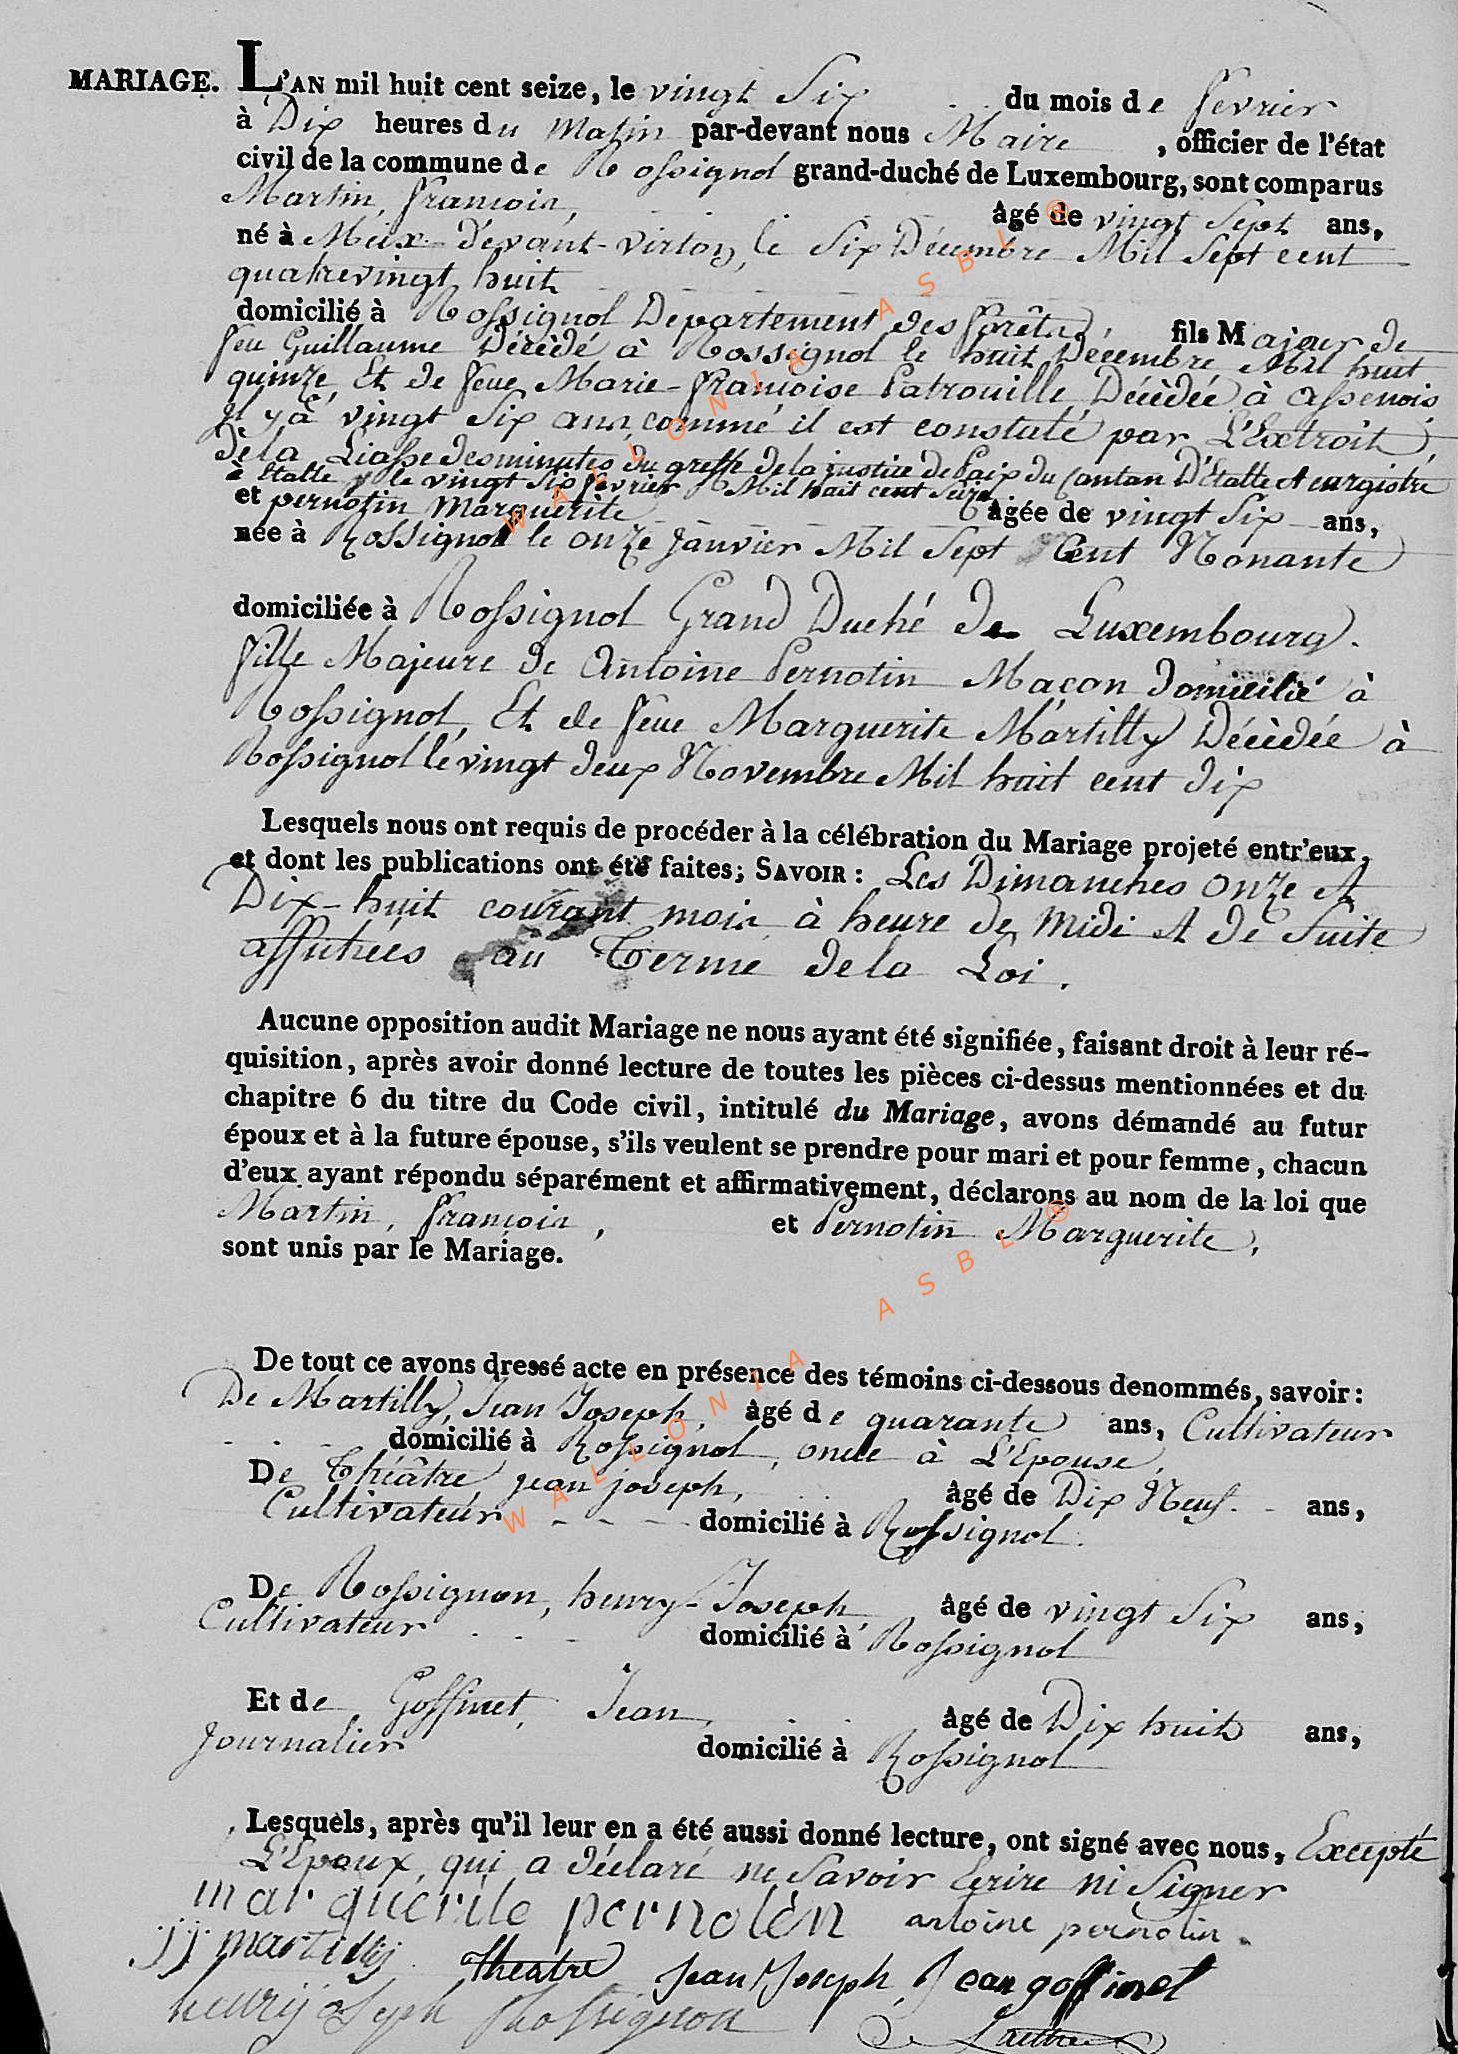 MARIAGE. L'AN mil huit cent seize, le vingt Six du mois de fevrier
à Dix heures du Matin par-devant nous Maire , officier de l'état
civil de la commune de Rossignol grand-duché de Luxembourg, sont comparus
Martin, francois, âgé de vingt Sept ans,
né à Meix-Devant-Virton, le Six Décembre Mil Sept cent
quatrevingt huit
domicilié à Rossignol Departement des forêts, fils Majeur de
feu Guillaume Décèdé à Rossignol le huit Décembre Mil huit
quinze, Et de feue Marie-françoise Patrouille, Décèdée à Assenois
Il y à vingt Six ans, comme il est constaté par L'Extrait,
de la Liasse des minutes du greffe de la justice de Paix du Canton D'Etalle et enrgistré
à Etalle le vingt Six fevrier Mil huit cent Seize
et pernotin Marguerite âgée de vingt Six ans,
née à Rossignol le onze Janvier Mil Sept Cent Nonante
domiciliée à Rossignol Grand Duché de Luxembourg.
fille Majeure de Antoine Pernotin Maçon domicilié à
Rossignol, Et de feue Marguerite Martilly Décèdée à
Rossignol le vingt deux Novembre Mil huit cent dix
Lesquels nous ont requis de procéder à la célébration du Mariage projeté entr'eux,
et dont les publications ont été faites; SAVOIR : Les Dimanches onze et
Dix-huit courant mois à heure de Midi et de Suite
affichées au Terme de la Loi.
Aucune opposition audit Mariage ne nous ayant été signifiée, faisant droit à leur ré-
quisition, après avoir donné lecture de toutes les pièces ci-dessus mentionnées et du
chapitre 6 du titre du Code civil, intitulé du Mariage, avons démandé au futur
époux et à la future épouse, s'ils veulent se prendre pour mari et pour femme, chacun
d'eux ayant répondu séparément et affirmativement, déclarons au nom de la loi que
Martin, françois, et Pernotin Marguerite,
sont unis par le Mariage.
De tout ce avons dressé acte en présence des témoins ci-dessous denommés, savoir :
De Martilly, Jean Joseph, âgé de quarante ans, Cultivateur
domicilié à Rossignol, oncle à L'Epouse,
De Théâtre, jean joseph, âgé de Dix Neuf ans,
Cultivateur domicilié à Rossignol.
De Rossignon, henry-Joseph, âgé de vingt Six ans,
Cultivateur domicilié à Rossignol
Et de Goffinet, Jean, âgé de Dix huit ans,
Journalier domicilié à Rossignol
Lesquels, après qu'il leur en a été aussi donné lecture, ont signé avec nous, Excepté
L'Epoux, qui a déclaré ne Savoir Ecrire ni Signer
marguerite pernoten antoine pernotin
jj martilly theatre jean Joseph Jean goffinet
henrij joseph Rossignon
WALLONIA ASBL ®
WALLONIA ASBL ®